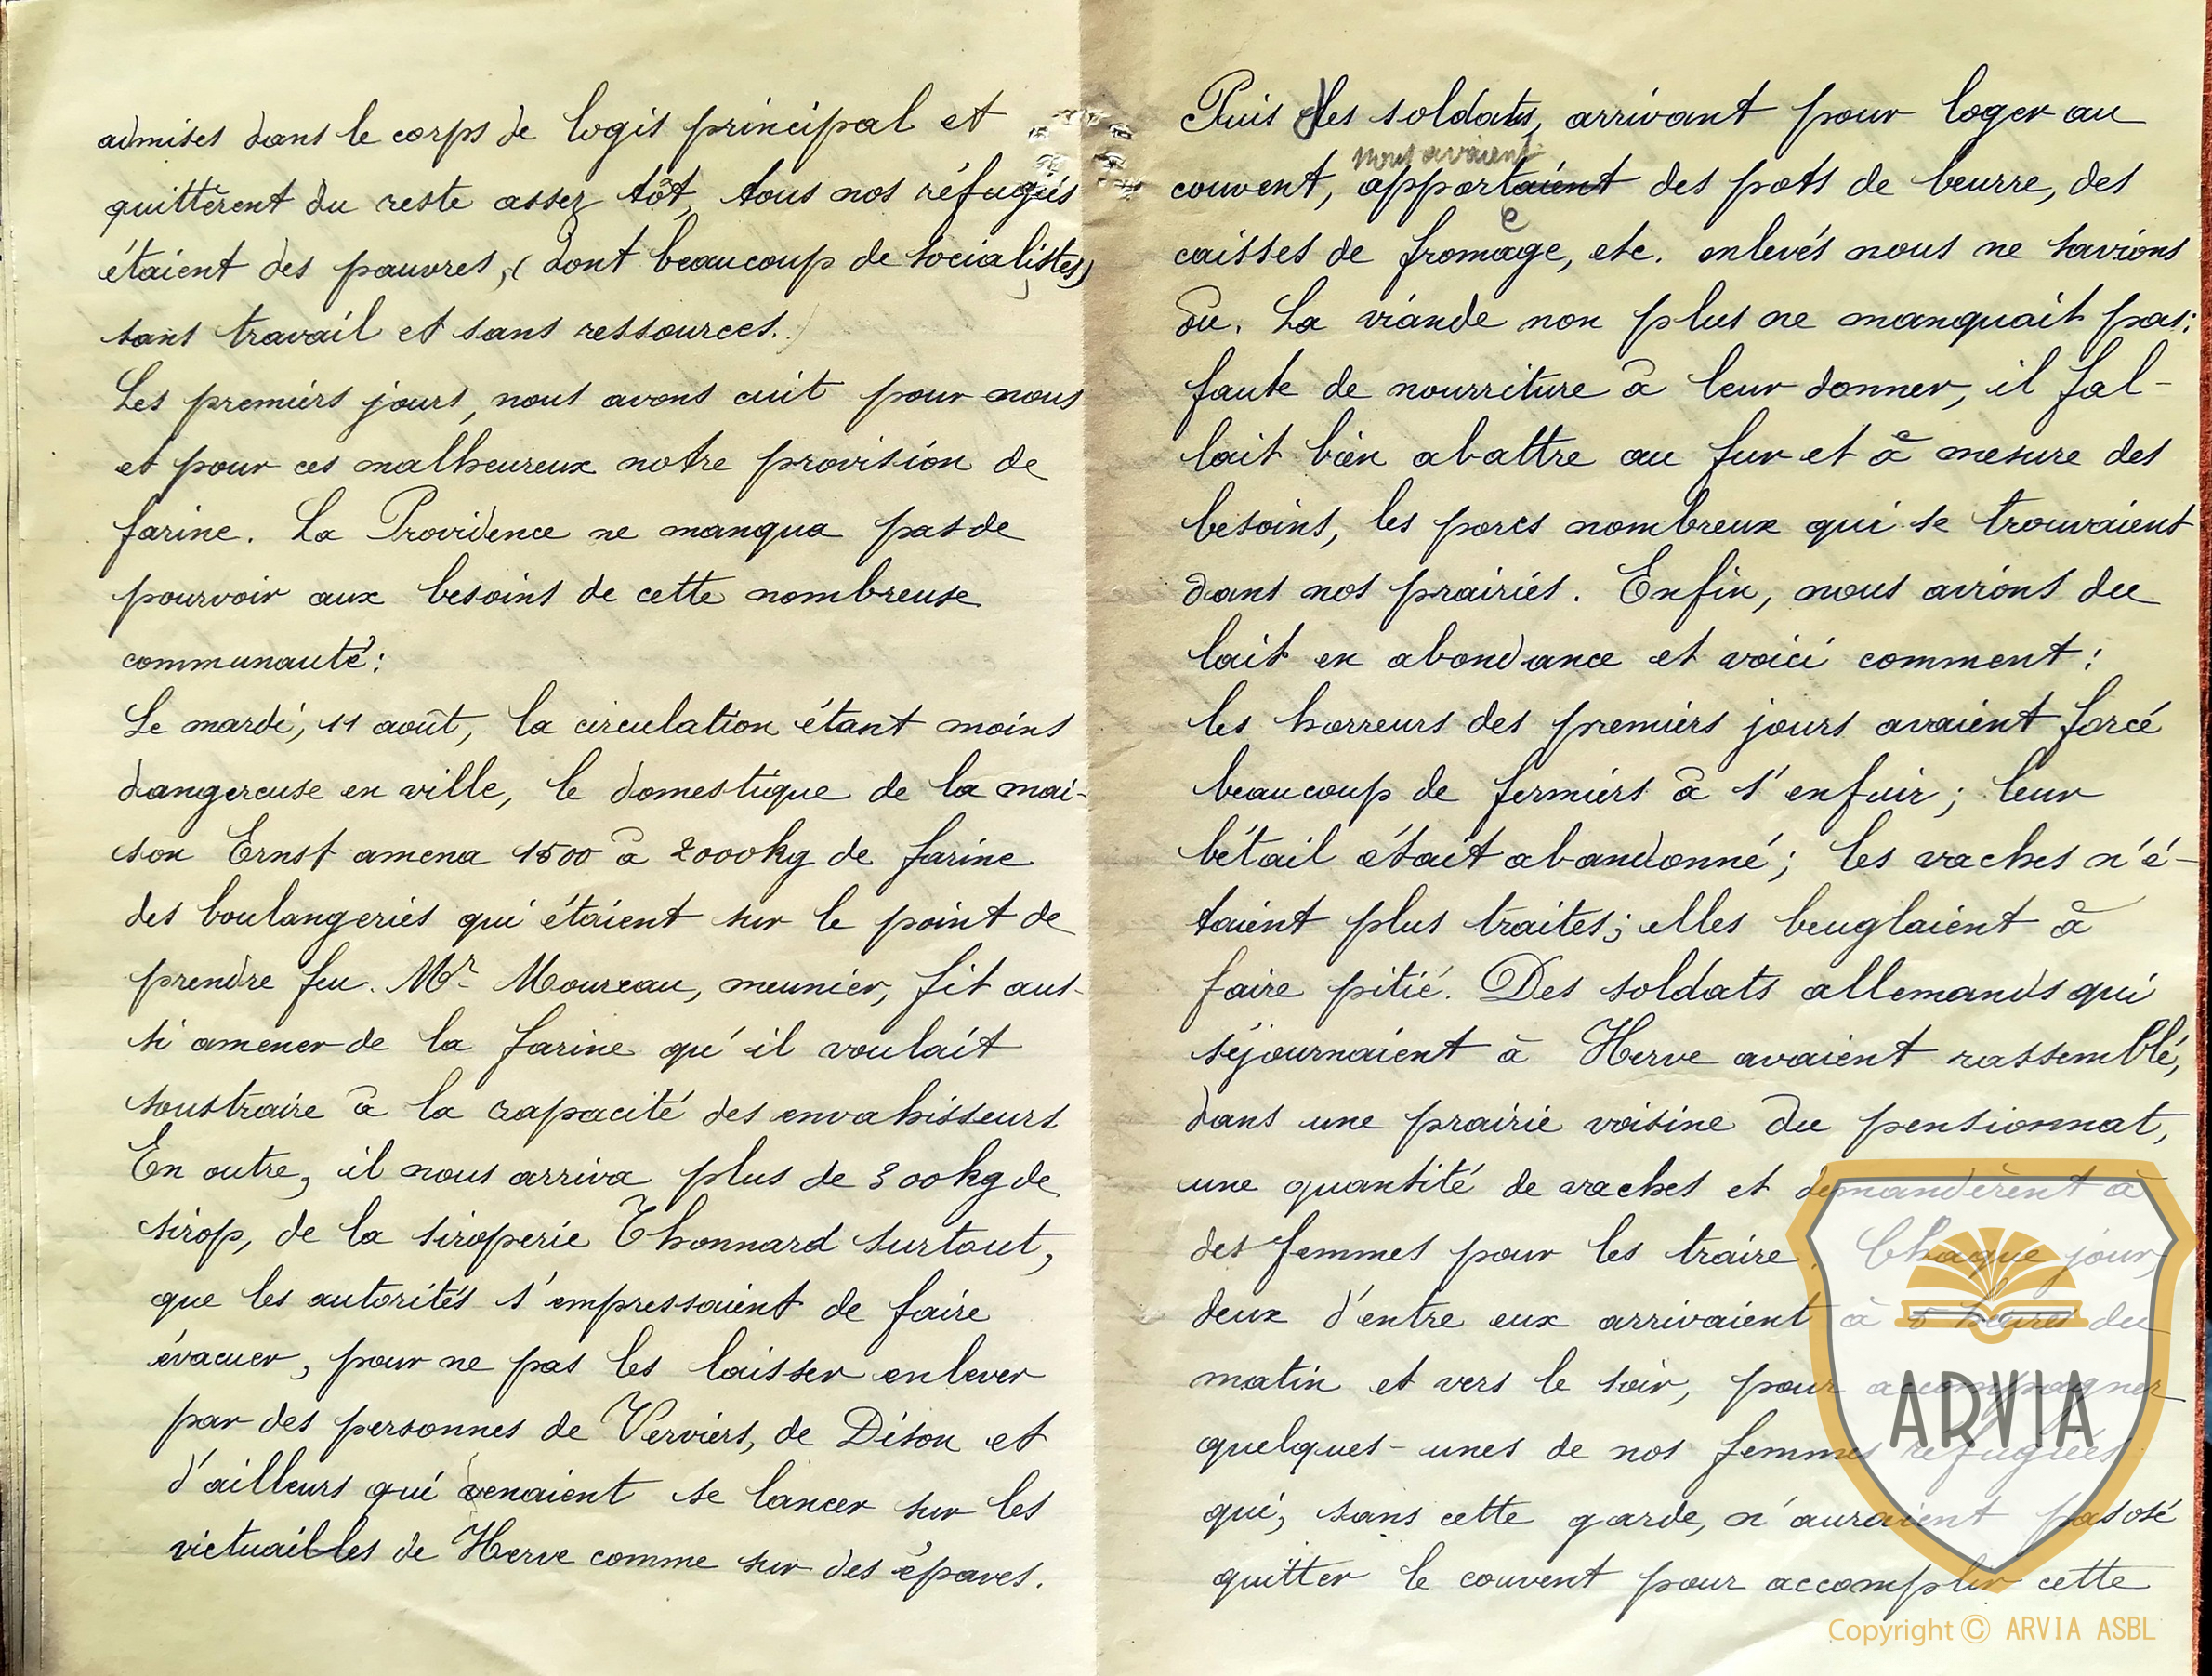 admises dans le corps de logis principal et
quittèrent du reste assez tôt, tous nos réfugiés
étaient des pauvres, (dont beaucoup de socialistes)
sans travail et sans ressources.)
Les premiers jours, nous avons cuit pour nous
et pour ces malheureux notre provision de
farine. La Providence ne manqua pas de
pourvoir aux besoins de cette nombreuse
communauté:
Le mardi, 11 août, la circulation étant moins
dangereuse en ville, le domestique de la mai-
son Ernst amena 1500 à 2000kg de farine
des boulangeries qui étaient sur le point de
prendre feu. Mr Moureau, meunier, fit aus-
si amener de la farine qu'il voulait
soustraire à la rapacité des envahisseurs
En outre, il nous arriva plus de 300kg de
sirop, de la siroperie Thonnard surtout,
que les autorités s'empressaient de faire
évacuer, pour ne pas les laisser enlever
par des personnes de Verviers, de Dison et
d'ailleurs qui venaient se lancer sur les
victuailles de Herve comme sur des épaves.
Puis les soldats, arrivant pour loger au
nous avaient
couvent, apportaient des pots de beurre, des
caisses de fromage, etc. enlevés nous ne savions
où. La viande non plus ne manquait pas:
faute de nourriture à leur donner, il fal-
lait bien abattre au fur et à mesure des
besoins, les porcs nombreux qui se trouvaient
dans nos prairies. Enfin, nous avions du
lait en abondance et voici comment:
les horreurs des premiers jours avaient forcé
beaucoup de fermiers à s'enfuir; leur
bétail était abandonné; les vaches n'é-
taient plus traites; elles beuglaient à
faire pitié. Des soldats allemands qui
séjournaient à Herve avaient rassemblé,
dans une prairie voisine du pensionnat,
une quantité de vaches et demandèrent à
des femmes pour les traire. Chaque jour,
deux d'entre eux arrivaient à heures du
matin et vers le soir, pour accompagner
quelques-unes de nos femmes réfugiées
qui, sans cette garde, n'auraient pas osé
quitter le couvent pour accomplir cette
ARVIA
Copyright © ARVIA ASBL